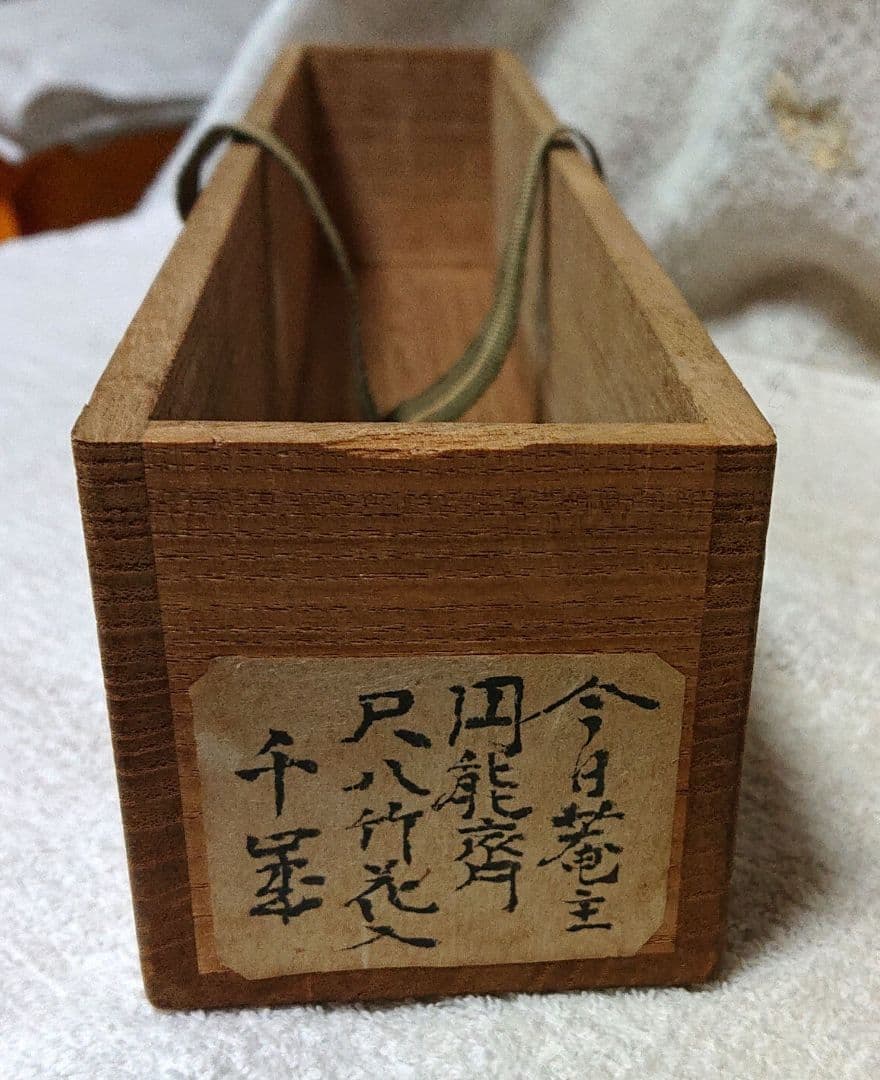 今日菴主
円能齋
尺八竹花入
千